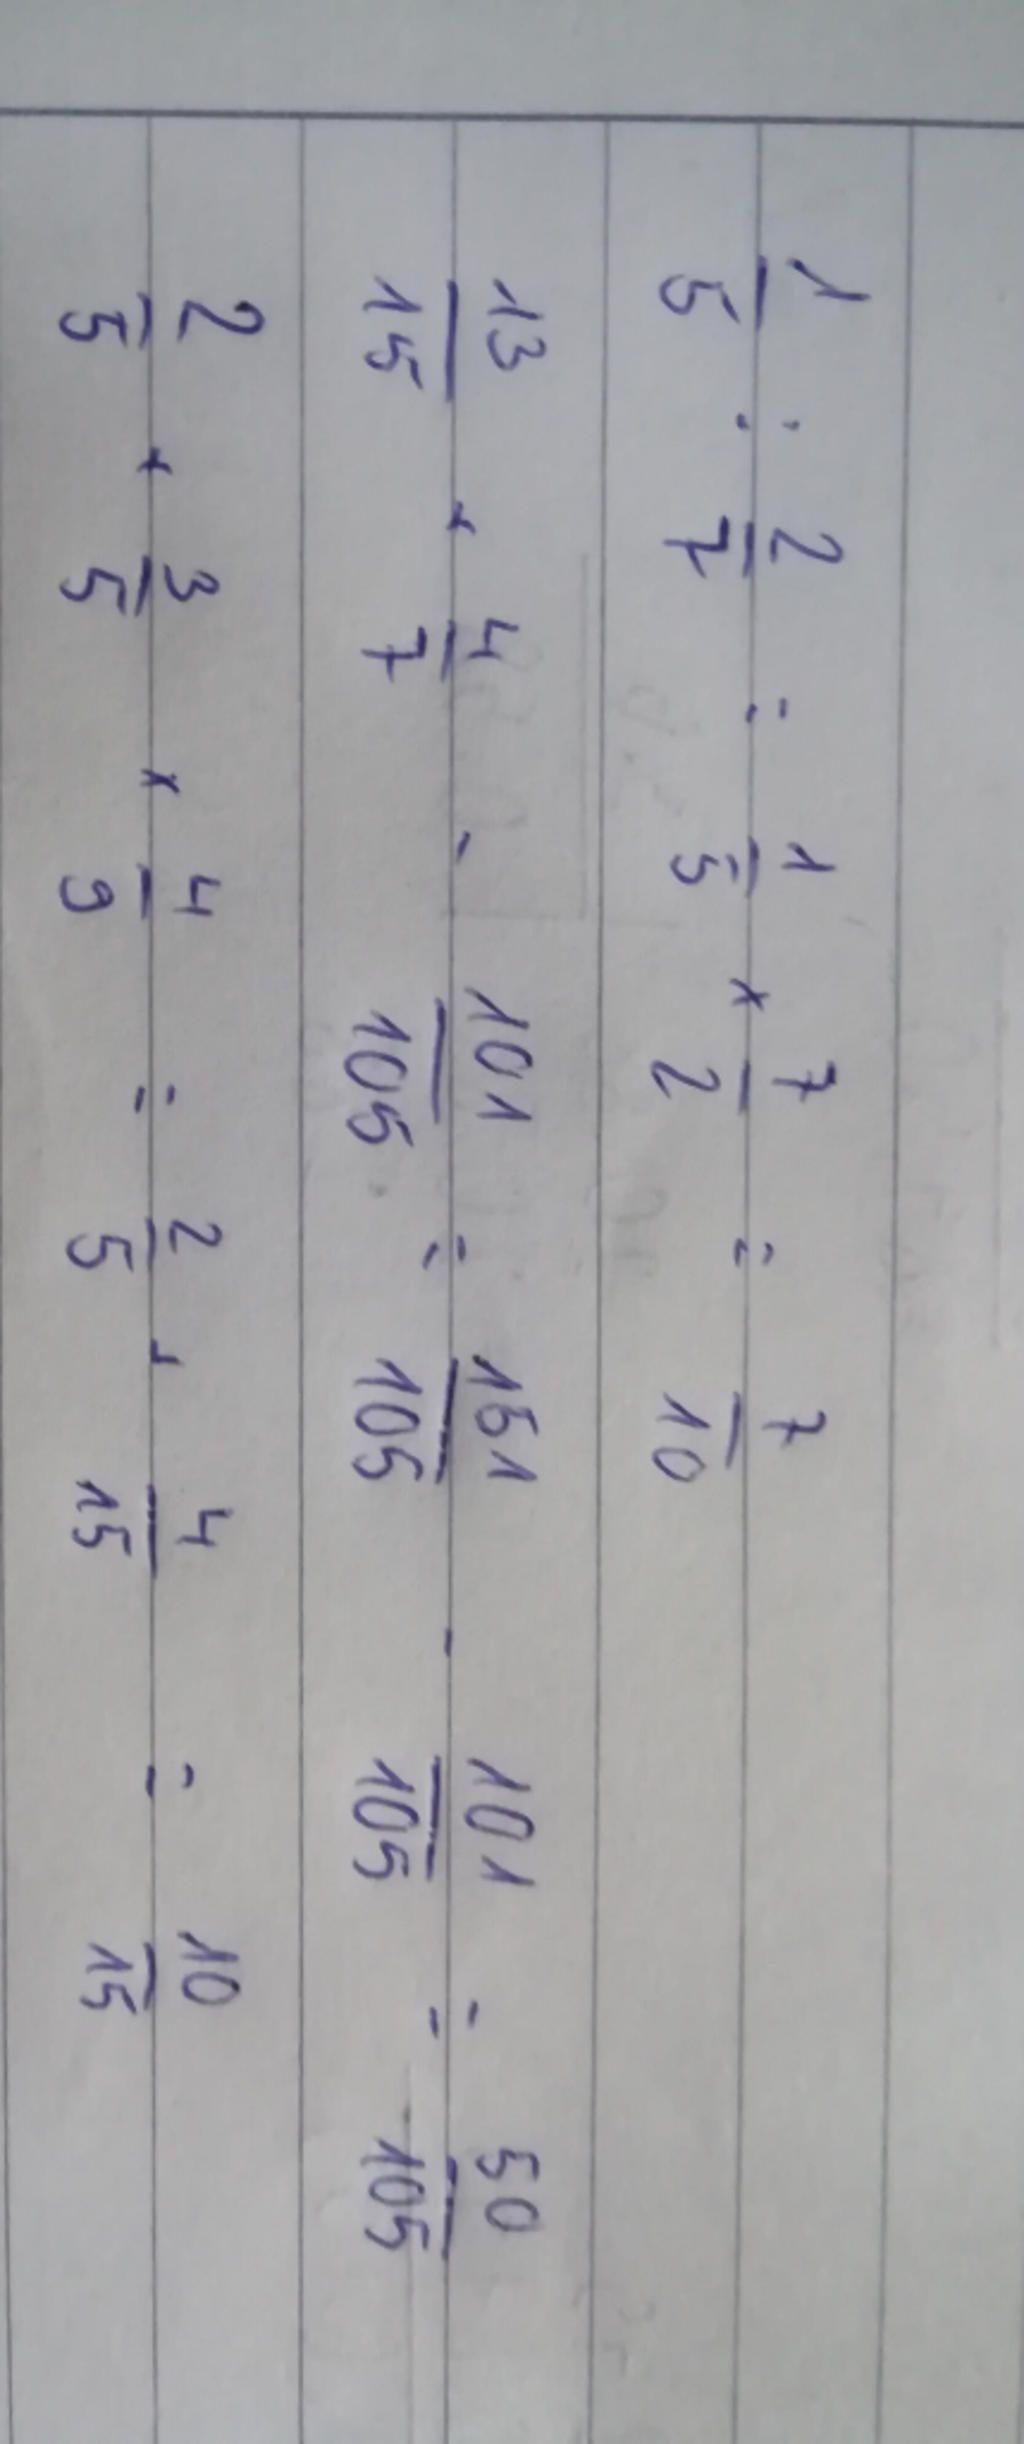 1/5 : 2/7 = 1/5 x 7/2 = 7/10
13/15 + 4/7 - 101/105 = 151/105 - 101/105 = 50/105
2/5 + 3/5 x 4/9 = 2/5 + 4/15 = 10/15